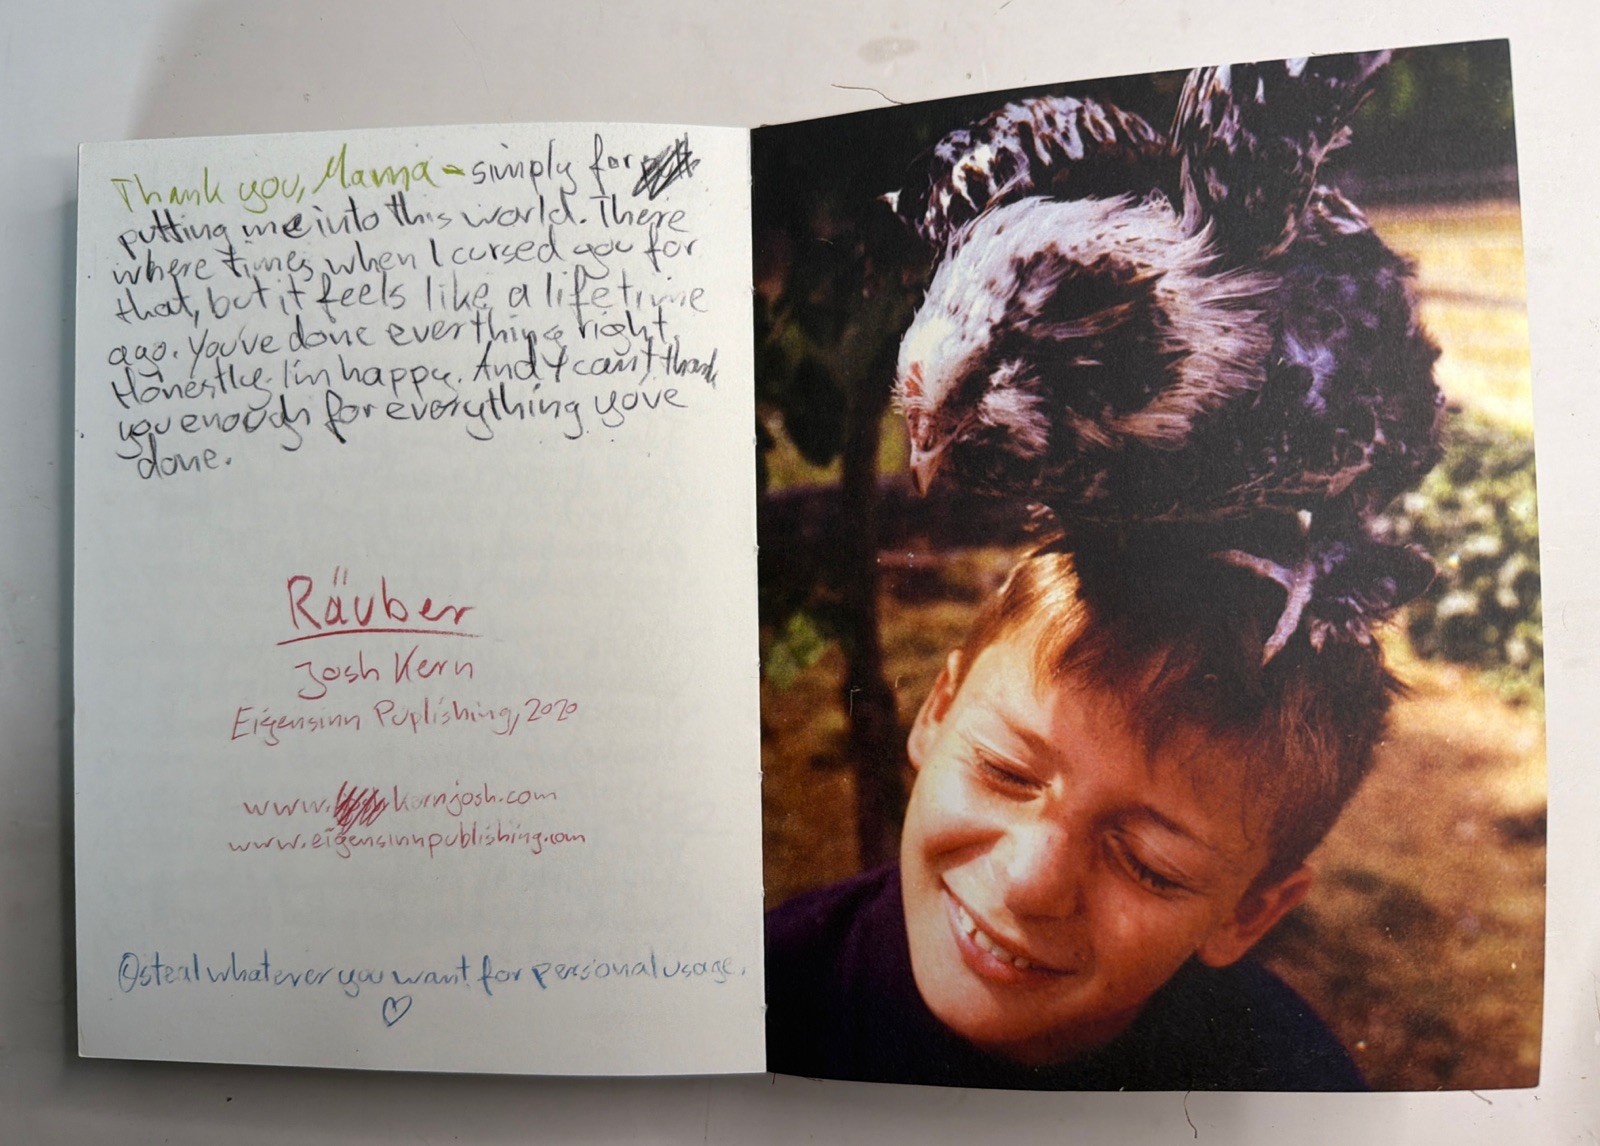 Thank you, Mama - simply for
putting me into this world. There
where times when I cursed you for
that, but it feels like a lifetime
ago. You've done everthing right.
Honestly. I'm happy. And I can't thank
you enough for everything yo've
done.
Räuber
Josh Kern
Eigensinn Puplishing, 2020
www.kernjosh.com
www.eigensinnpublishing.com
©steal whatever you want for personal usage.